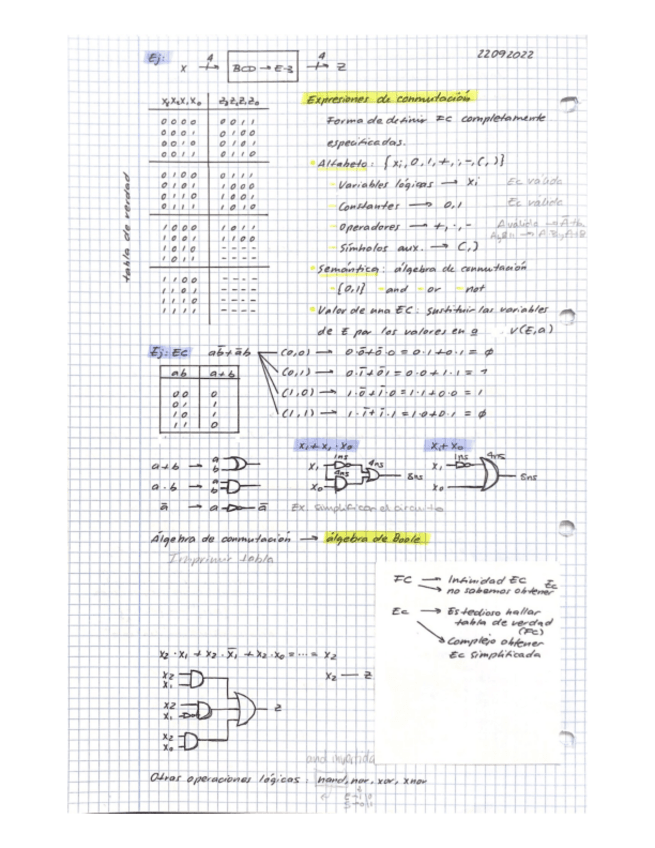 Ej:
x 4 BCD → E-3 4 z
22092022
tabla de verdad
x₃x₂x₁x₀ z₃z₂z₁z₀
0000 0011
0001 0100
0010 0101
0011 0110
0100 0111
0101 1000
0110 1001
0111 1010
1000 1011
1001 1100
1010 ----
1011 ----
1100 ----
1101 ----
1110 ----
1111 ----
Expresiones de conmutación
Forma de definir FC completamente
especificadas.
Alfabeto: {xᵢ,0,1,+,·,-,(,)}
- Variables lógicas → xᵢ Ec valida
- Constantes → 0,1 Ec valida
- Operadores → +,·,-
- Símbolos aux. → (,)
Semántica: álgebra de conmutación
- {0,1} - and - or - not
Valor de una EC: sustituir las variables
de E por los valores en a V(E,a)
Ej: EC ab̄+āb
(0,0) → 0·0̄+0̄·0=0·1+0·1=0
(0,1) → 0·1̄+0̄1=0·0+1·1=1
(1,0) → 1·0̄+1̄·0=1·1+0·0=1
(1,1) → 1·1̄+1̄·1=1·0+0·1=0
ab a+b
00 0
01 1
10 1
11 0
x₁+x₁·x₀ x₁+x₀
a+b → a b
a·b → a b
ā → a ā
x₁ 1ns 4ns 4ns 8ns
x₀
x₁ 1ns 4ns 5ns
x₀
Ex. simplificar el circuito
Álgebra de conmutación → álgebra de Boole
Imprimir tabla
FC → Infinidad EC
→ no sabemos obtener Ec
Ec → Es tedioso hallar
tabla de verdad
(FC)
→ Complejo obtener
Ec simplificada
x₂·x₁+x₂·x̄₁+x₂·x₀=···=x₂
x₂ — z
x₂
x₁
x₂
x₁
z
x₂
x₀
and invertida
Otras operaciones lógicas: nand, nor, xor, xnor